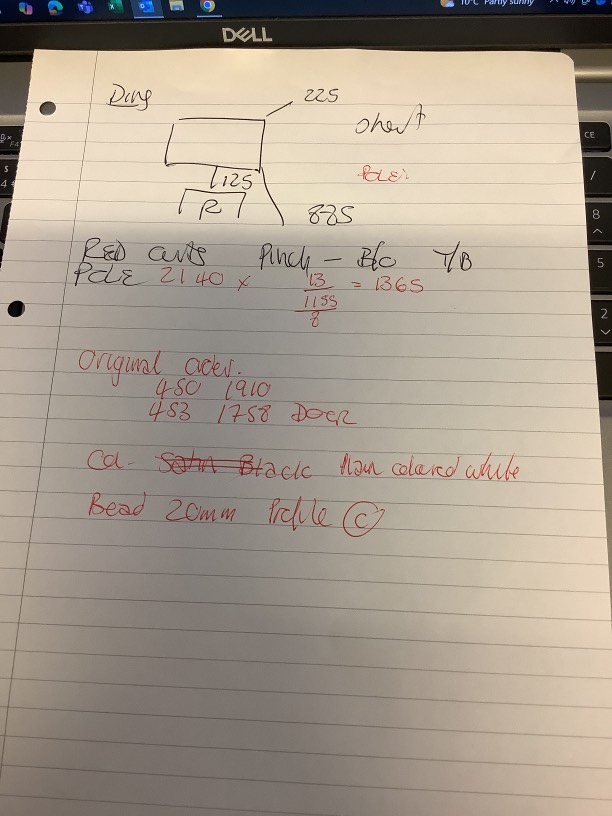 10°C Partly sunny
DELL
Ding
225
Short
POLE:
125
R
885
RED CURTS Pinch - B/O T/B
POLE 2140 x 13/1155/8 = 1365
Original order.
450 1910
453 1758 DOOR
Col- Satin Black Man colored white
Bead 20mm Profile C
CE
/
8
5
2
F4
$
4